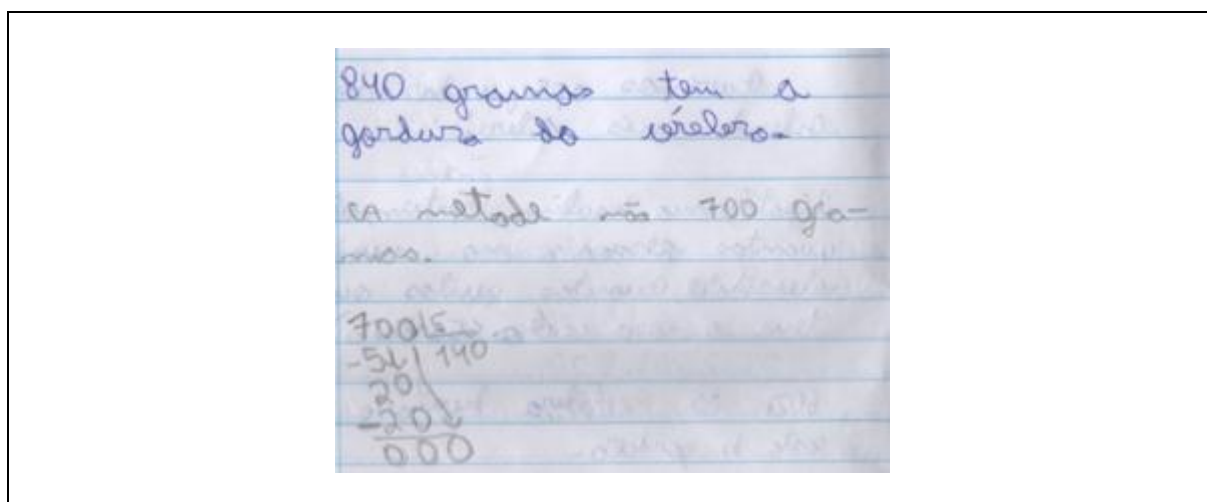 840 gramas tem a
gordura do cérebro.
A metade são 700 gra-
mas.
700 5
-5 140
20
-20
000